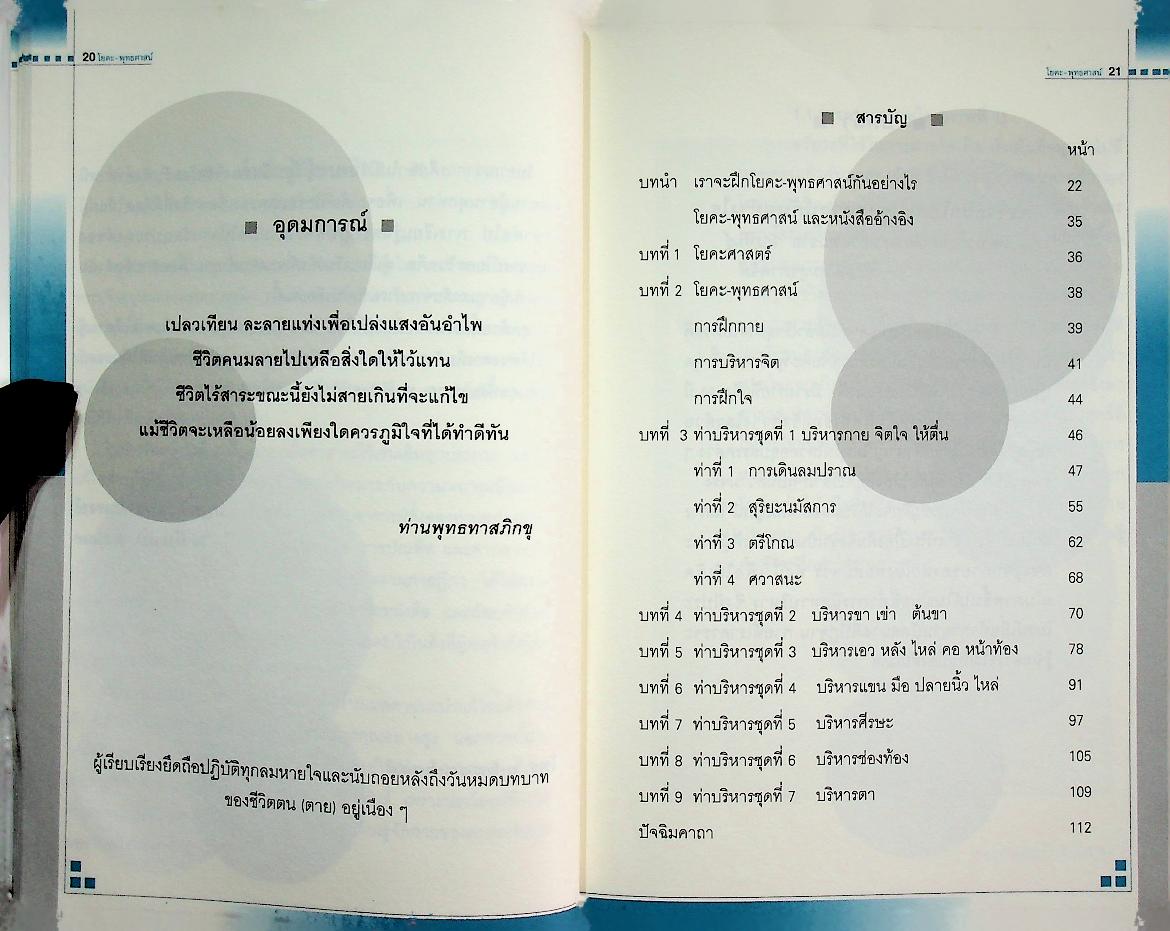 20 โยคะ-พุทธศาสน์
อุดมการณ์
เปลวเทียน ละลายแท่งเพื่อเปล่งแสงอันอำไพ
ชีวิตคนมลายไปเหลือสิ่งใดให้ไว้แทน
ชีวิตไร้สาระขณะนี้ยังไม่สายเกินที่จะแก้ไข
แม้ชีวิตจะเหลือน้อยลงเพียงใดควรภูมิใจที่ได้ทำดีทัน
ท่านพุทธทาสภิกขุ
ผู้เรียบเรียงยึดถือปฏิบัติทุกลมหายใจและนับถอยหลังถึงวันหมดบทบาท
ของชีวิตตน (ตาย) อยู่เนือง ๆ
โยคะ-พุทธศาสน์ 21
สารบัญ
หน้า
บทนำ เราจะฝึกโยคะ-พุทธศาสน์กันอย่างไร 22
โยคะ-พุทธศาสน์ และหนังสืออ้างอิง 35
บทที่ 1 โยคะศาสตร์ 36
บทที่ 2 โยคะ-พุทธศาสน์ 38
การฝึกกาย 39
การบริหารจิต 41
การฝึกใจ 44
บทที่ 3 ท่าบริหารชุดที่ 1 บริหารกาย จิตใจ ให้ตื่น 46
ท่าที่ 1 การเดินลมปราณ 47
ท่าที่ 2 สุริยะนมัสการ 55
ท่าที่ 3 ตรีโกณ 62
ท่าที่ 4 ศวาสนะ 68
บทที่ 4 ท่าบริหารชุดที่ 2 บริหารขา เข่า ต้นขา 70
บทที่ 5 ท่าบริหารชุดที่ 3 บริหารเอว หลัง ไหล่ คอ หน้าท้อง 78
บทที่ 6 ท่าบริหารชุดที่ 4 บริหารแขน มือ ปลายนิ้ว ไหล่ 91
บทที่ 7 ท่าบริหารชุดที่ 5 บริหารศีรษะ 97
บทที่ 8 ท่าบริหารชุดที่ 6 บริหารช่องท้อง 105
บทที่ 9 ท่าบริหารชุดที่ 7 บริหารตา 109
ปัจฉิมคาถา 112